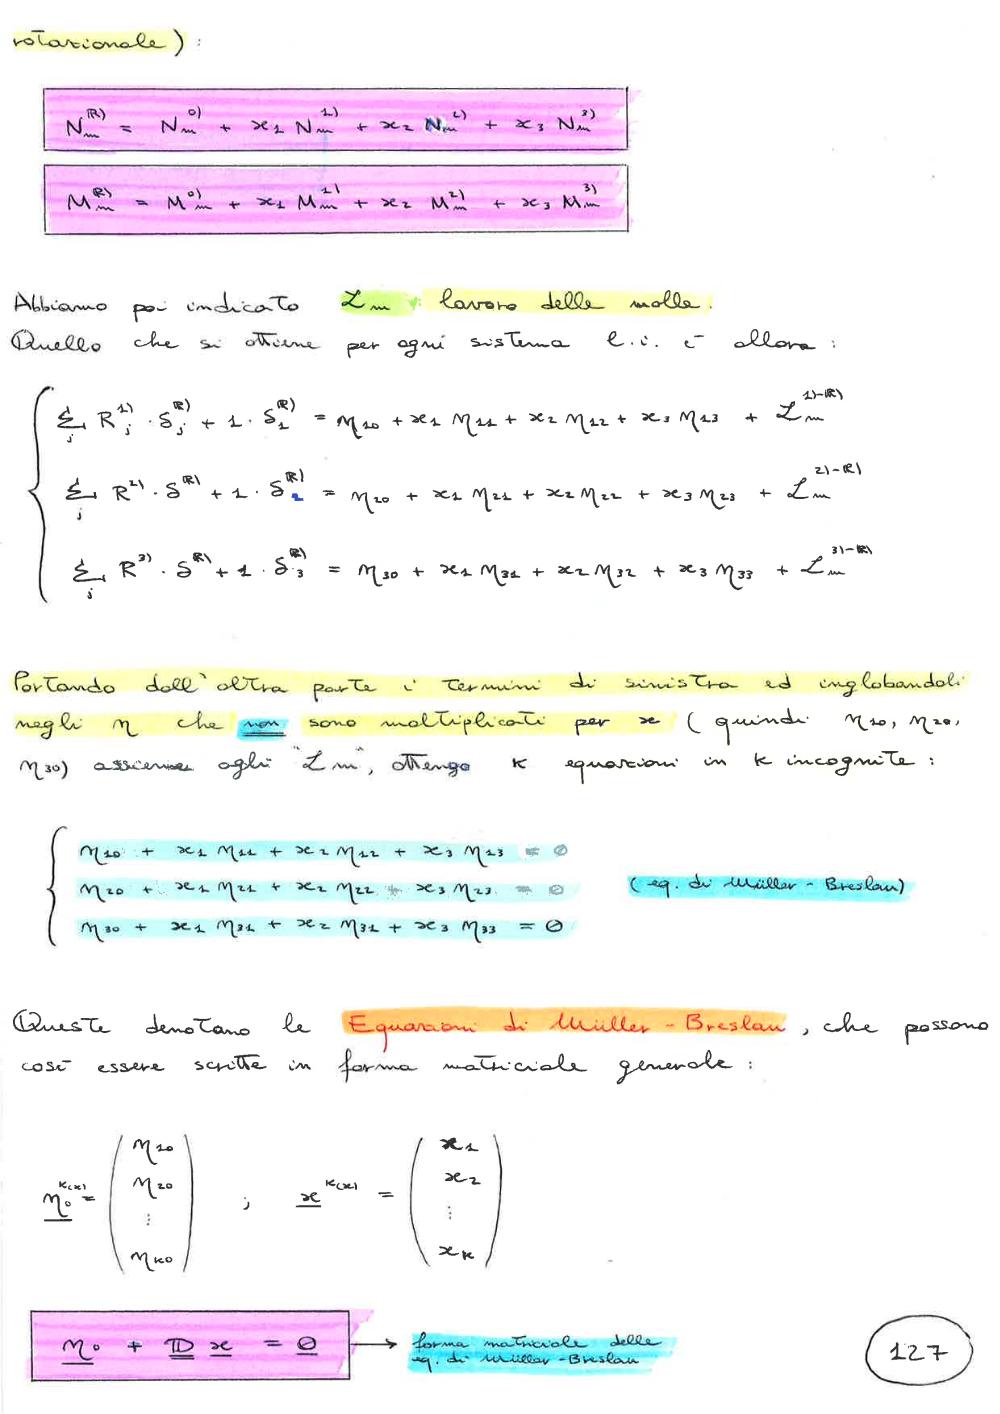 rotazionale) :
N_m^{(R)} = N_m^{0)} + x_1 N_m^{1)} + x_2 N_m^{2)} + x_3 N_m^{3)}
M_m^{(R)} = M_m^{0)} + x_1 M_m^{1)} + x_2 M_m^{2)} + x_3 M_m^{3)}
Abbiamo poi indicato L_m : lavoro delle molle.
Quello che si ottiene per ogni sistema l.i. è allora :
Σ_j R_j^{1)} · δ_j^{(R)} + 1 · δ_1^{(R)} = η_10 + x_1 η_11 + x_2 η_12 + x_3 η_13 + L_m^{1)-(R)}
Σ_j R^{2)} · δ^{(R)} + 1 · δ_2^{(R)} = η_20 + x_1 η_21 + x_2 η_22 + x_3 η_23 + L_m^{2)-(R)}
Σ_j R^{3)} · δ^{(R)} + 1 · δ_3^{(R)} = η_30 + x_1 η_31 + x_2 η_32 + x_3 η_33 + L_m^{3)-(R)}
Portando dall'altra parte i termini di sinistra ed inglobandoli
negli η che non sono moltiplicati per x ( quindi η_10, η_20,
η_30) assieme agli "L_m", ottengo K equazioni in K incognite :
η_10 + x_1 η_11 + x_2 η_12 + x_3 η_13 = 0
η_20 + x_1 η_21 + x_2 η_22 + x_3 η_23 = 0 (eq. di Müller - Breslau)
η_30 + x_1 η_31 + x_2 η_31 + x_3 η_33 = 0
Queste denotano le Equazioni di Müller - Breslau , che possono
così essere scritte in forma matriciale generale :
η_0^{K(x1)} = ( η_10 η_20 ⋮ η_K0 ) ; x^{K(x1)} = ( x_1 x_2 ⋮ x_K )
η_0 + D x = 0 → forma matriciale delle
eq. di Müller - Breslau
127